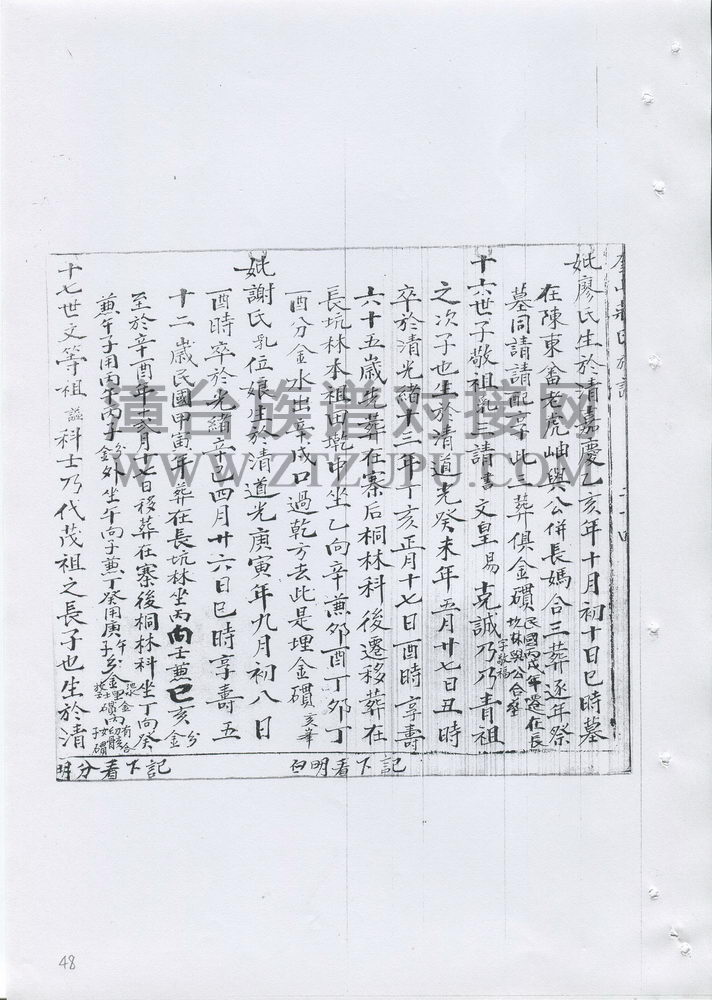 妣廖氏生於清嘉慶乙亥年十月初十日巳時墓
在陳東畲老虎岫與公併長媽合三葬逐年祭
墓同請請配享此一葬俱金礶民國丙戌年遷在長坑林與公合塟
十六世子敬祖乳三請書文皇易克誠乃青祖
字敬福
之次子也生於清道光癸未年五月廿七日丑時
卒於清光緒十三年丁亥正月十七日酉時享壽
六十五歲先葬在寨后桐林科後遷移葬在
長坑林本祖田墘申坐乙向辛兼夘酉丁夘丁
酉分金水出辛戌口過乾方去此是埋金礶
妣謝氏乳位娘生於清道光庚寅年九月初八日
酉時卒於光緒辛巳四月廿六日巳時享壽五
十二歲民國甲寅年葬在長坑林坐丙向壬兼巳亥分金
至於辛酉年二月十七日移葬在寨後桐林科坐丁向癸
兼午子用丙午丙子分金外坐午向子兼丁癸用庚午庚子分金
十七世文等祖諡科士乃代茂祖之長子也生於清
白明看下記
明分看下記
漳台族谱对接网
WWW.ZTZUPU.COM
48